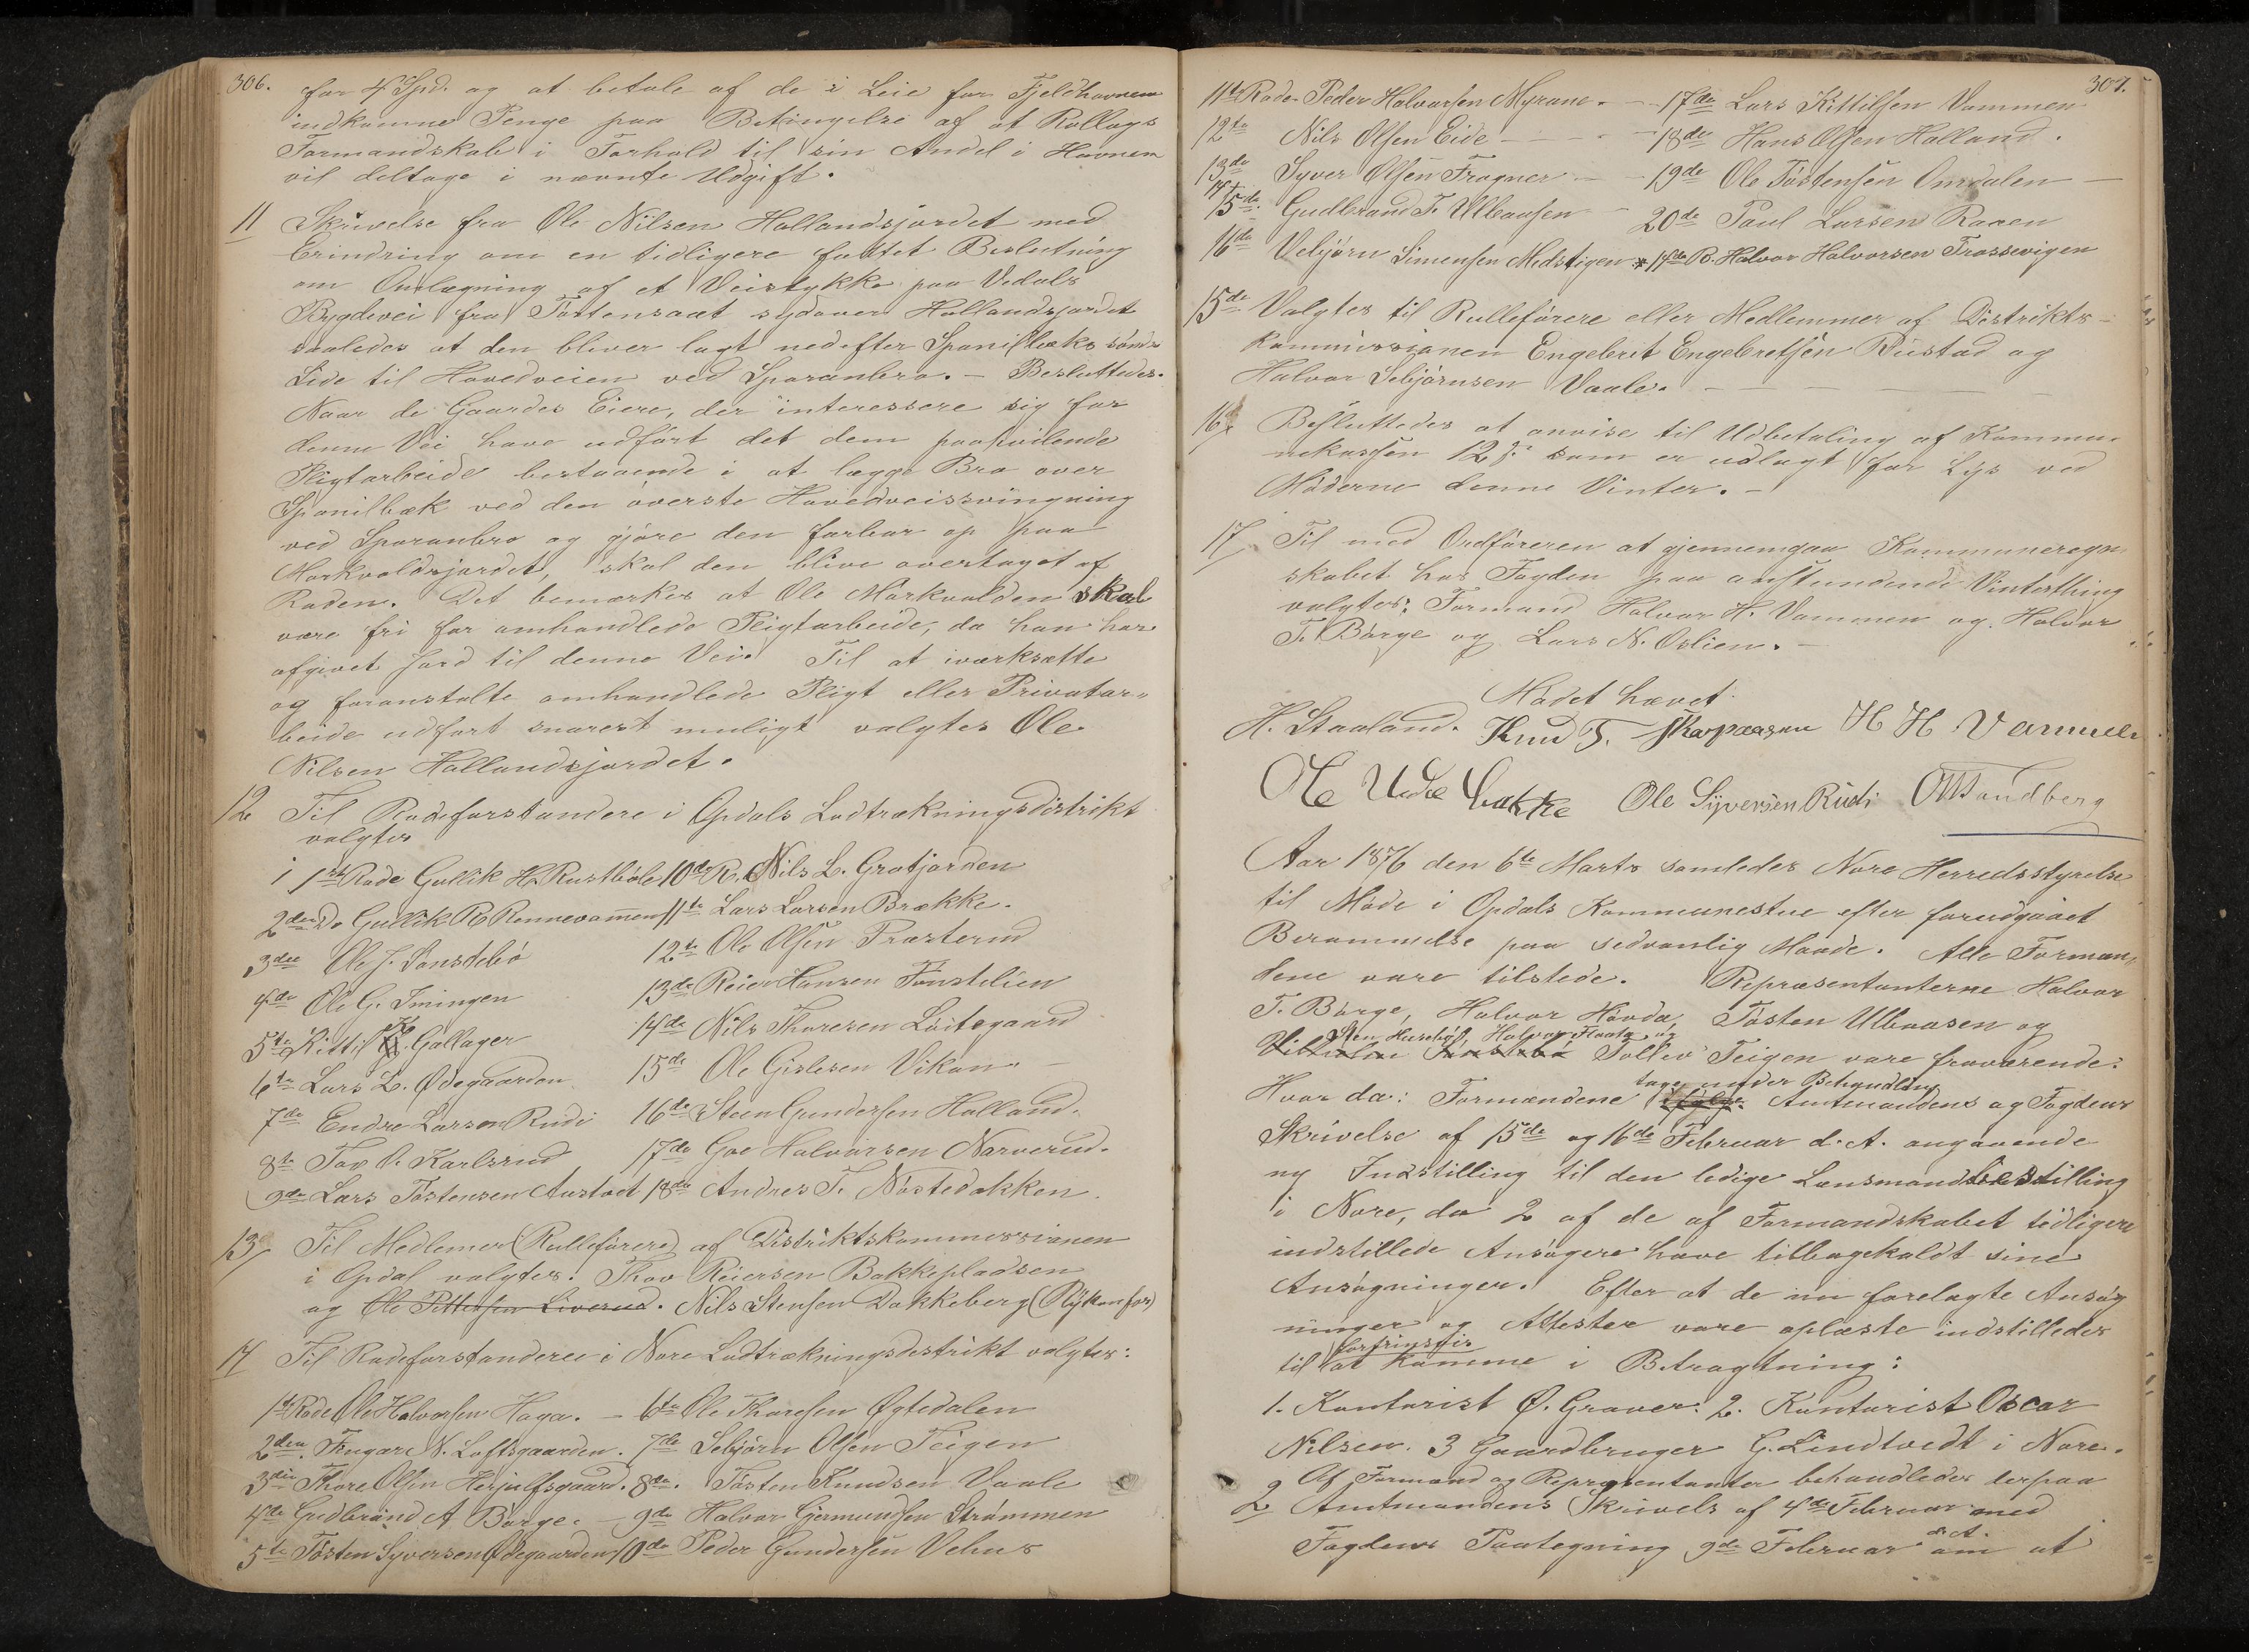 306.
for 4 Spd. og at betale af de i Leie for Fjeldhavnen
indkomne Penge paa Betingelse af at Rollags
Formandskab i Forhold til sin Andel i Havnen
vil deltage i nævnte Udgift.
11 Skrivelse fra Ole Nilsen Hallandsjordet med
Erindring om en tidligere fattet Beslutning
om Omlægning af et Veistykke paa Vedals
Bygdevei fra Tostensaaet sydover Hallandsjordet
saaledes at den bliver lagt nedefter Spanilbæks søndre
Side til Hovedveien ved Sporanbro. – Besluttedes.
Naar de Gaardes Eiere, der interessere sig for
denne Vei have udført det dem paahvilende
Pligtarbeide bestaaende i at lægge Bro over
Spanilbæk ved den øverste Hovedveissvingning
ved Sporanbro og gjøre den farbar op paa
Morkvoldsjordet, skal den blive overtaget af
Roden. Det bemærkes at Ole Morkvolden skal
være fri for omhandlede Pligtarbeide, da han har
afgivet Jord til denne Vei. Til at iværksætte
og foranstalte omhandlede Pligt eller Privatar-
beide udført snarest muligt valgtes Ole
Nilsen Hallandsjordet.
12 Til Rodeforstandere i Opdals Lodtrækningsdistrikt
valgtes
i 1ste Rode Gullik H. Rustbøle 10de R. Nils L. Grotjorden
2den Do Gullik R Rennevammen 11te Lars Larsen Brække.
3die Ole J. Sønstebø 12te Ole Olsen Præsterud
4de Ole G. Imingen 13de Reier Hansen Fønstelien
5te Kittil K. Gallager 14de Nils Thoresen Løitegaard
6te Lars L. Ødegaarden 15de Ole Gislesen Vikan. –
7de Endre Larsen Rudi 16de Steen Gundersen Halland.
8de Tov O. Karlsrud 17de Goe Halvorsen Narverud.
9de Lars Tostensen Austvet 18de Andres T. Nøstedokken.
13 Til Medlemer (Rulleførere) af Distriktskommissionen
i Opdal valgtes: Thov Reiersen Bakkepladsen
og Ole Pettersen Liverud. Nils Stensen Dakkeberg
14 Til Rodeforstandere i Nore Lodtrækningsdistrikt valgtes:
1ste Rode Ole Halvorsen Haga. – 6te Ole Thoresen Øgtedalen
2den Trugar N. Loftsgaarden. 7de Sebjørn Olsen Teigen
3die Thore Olsen Herjulfsgaard. 8de. Tosten Knudsen Vaale
4de Gudbrand A Børge. – 9de Halvor Gjermundsen Strømmen
5te Tosten Syversen Ødegaarden 10de Peder Gundersen Velus
307.
11te Rode Peder Halvorsen Myrane. – 17de Lars Kittilsen Vammen
12te Nils Olsen Eide – 18de Hans Olsen Halland.
13de Syver Olsen Frogner – 19de Ole Tostensen Omdalen –
15de. Gudbrand T. Ulbaasen – 20de Paul Larsen Raaen
16de Vebjørn Simensen Medstigen * 14de R. Halvor Halvorsen Trossevigen
15de Valgtes til Rulleførere eller Medlemmer af Distrikts-
kommissionen Engebrit Engebretsen Rustad og
Halvor Sebjørnsen Vaale. –
16 Besluttedes at anvise til Udbetaling af Kommu-
nekassen 12 s som er udlagt for Lys ved
Møderne denne Vinter. –
17 Til med Ordføreren at gjennemgaa Kommuneregn-
skabet hos Fogden paa anstundende Vinterthing
valgtes: Formand Halvor H. Vammen og Halvor
T. Børge og Lars N. Oslien. –
Mødet hævet.
H. Staaland. Knud T. Skarpaasen H H Vammen
Ole Brække Ole Syversen Rudi O Sandberg
Aar 1876 den 6te Marts samledes Nore Herredsstyrelse
til Møde i Opdals Kommunestue efter forudgaaet
Berammelse paa sedvanlig Maade. Alle Formæn-
dene vare tilstede. Repræsentanterne Halvor
T. Børge, Halvor Hovda, Tosten Ulbaasen og
Sten Husebø, Halvor Flaata og
Tollev Teigen vare fraværende:
tage under Behandling
Hvor da: Formændene Amtmandens og Fogdens
Skrivelse af 15de og 16de Februar d. A. angaaende
ny Indstilling til den ledige Lensmandsbestilling
i Nore, da 2 af de af Formandskabet tidligere
indstillede Ansøgere have tilbagekaldt sine
Ansøgninger. Efter at de nu forelagte Ansøg
ninger og Attester vare oplæste indstilledes
fortrinsvis
til at komme i Betragtning:
1. Kontorist Ø. Graver. 2. Kontorist Oscar
Nilsen. 3 Gaardbruger G. Lindtvedt i Nore.
2 Af Formænd og Repræsentanter behandledes derpaa
Amtmandens Skrivels af 4de Februar med
d. A.
Fogdens Paategning 9de Februar om at